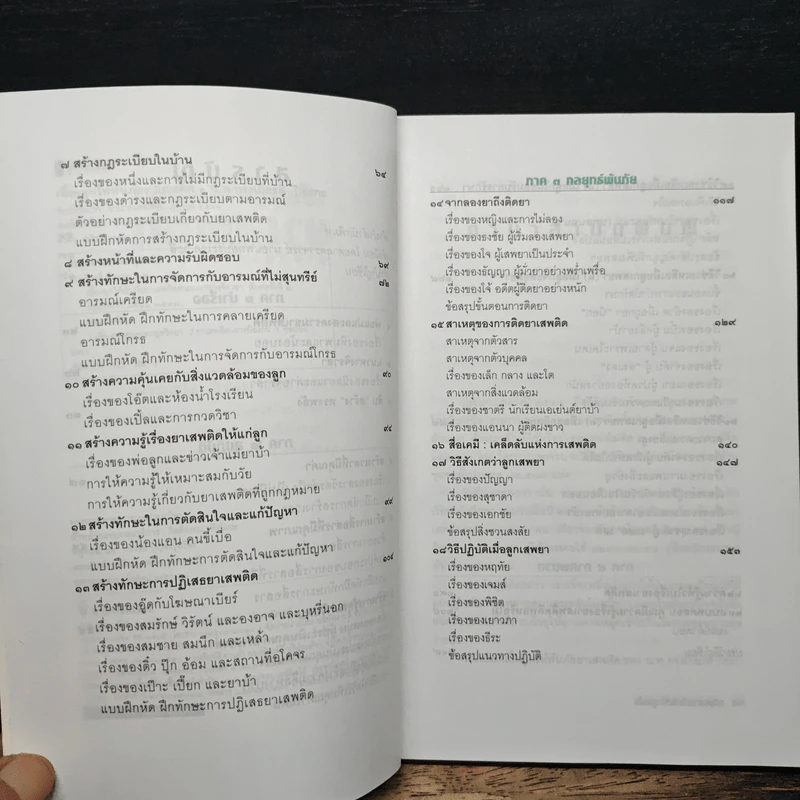 ๗ สร้างกฎระเบียบในบ้าน ๖๔
เรื่องของหนึ่งและการไม่มีกฎระเบียบที่บ้าน
เรื่องของดำรงและกฎระเบียบตามอารมณ์
ตัวอย่างกฎระเบียบเกี่ยวกับยาเสพติด
แบบฝึกหัดการสร้างกฎระเบียบในบ้าน
๘ สร้างหน้าที่และความรับผิดชอบ ๖๙
๙ สร้างทักษะในการจัดการกับอารมณ์ที่ไม่สุนทรีย์ ๗๒
อารมณ์เครียด
แบบฝึกหัด ฝึกทักษะในการคลายเครียด
อารมณ์โกรธ
แบบฝึกหัด ฝึกทักษะในการจัดการกับอารมณ์โกรธ
๑๐ สร้างความคุ้นเคยกับสิ่งแวดล้อมของลูก ๙๐
เรื่องของโอ๊ตและห้องน้ำโรงเรียน
เรื่องของเปิ้ลและการกวดวิชา
๑๑ สร้างความรู้เรื่องยาเสพติดให้แก่ลูก ๙๔
เรื่องของพ่อลูกและข่าวเจ้าแม่ยาบ้า
การให้ความรู้ให้เหมาะสมกับวัย
การให้ความรู้เกี่ยวกับยาเสพติดที่ถูกกฎหมาย
๑๒ สร้างทักษะในการตัดสินใจและแก้ปัญหา ๙๙
เรื่องของน้องแอน คนขี้เบื่อ
แบบฝึกหัด ฝึกทักษะในการตัดสินใจและแก้ปัญหา
๑๓ สร้างทักษะการปฏิเสธยาเสพติด ๑๐๔
เรื่องของอู๊ดกับโฆษณาเบียร์
เรื่องของสมรักษ์ วิรัตน์ และองอาจ และบุหรี่นอก
เรื่องของสมชาย สมนึก และเหล้า
เรื่องของติ๋ว ปุ๊ก อ้อม และสถานที่อโคจร
เรื่องของเป๊าะ เปี๊ยก และยาบ้า
แบบฝึกหัด ฝึกทักษะการปฏิเสธยาเสพติด
ภาค ๓ กลยุทธ์พ้นภัย
๑๔ จากลองยาถึงติดยา ๑๑๗
เรื่องของหญิงและการไม่ลอง
เรื่องของธงชัย ผู้เริ่มลองเสพยา
เรื่องของโจ ผู้เสพยาเป็นประจำ
เรื่องของธัญญา ผู้มั่วยาอย่างพร่ำเพรื่อ
เรื่องของโจ้ อดีตผู้ติดยาอย่างหนัก
ข้อสรุปขั้นตอนการติดยา
๑๕ สาเหตุของการติดยาเสพติด ๑๒๙
สาเหตุจากตัวสาร
สาเหตุจากตัวบุคคล
เรื่องของเล็ก กลาง และโต
สาเหตุจากสิ่งแวดล้อม
เรื่องของชาตรี นักเรียนเอเย่นต์ยาบ้า
เรื่องของแอนนา ผู้ติดผงขาว
๑๖ สื่อเคมี : เคล็ดลับแห่งการเสพติด ๑๔๐
๑๗ วิธีสังเกตว่าลูกเสพยา ๑๔๗
เรื่องของปัญญา
เรื่องของสุชาดา
เรื่องของเอกชัย
ข้อสรุปสิ่งชวนสงสัย
๑๘ วิธีปฏิบัติเมื่อลูกเสพยา ๑๕๓
เรื่องของหฤทัย
เรื่องของเจมส์
เรื่องของพิชิต
เรื่องของเยาวภา
เรื่องของธีระ
ข้อสรุปแนวทางปฏิบัติ